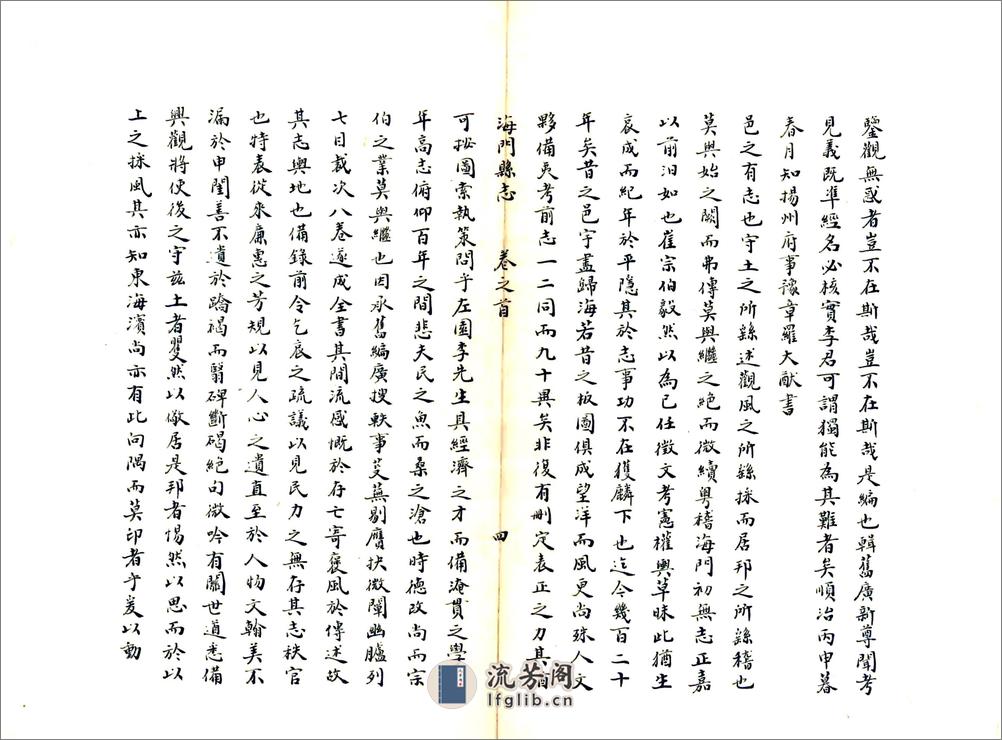 鑒觀無惑者豈不在斯哉豈不在斯哉是編也輯舊廣新尊聞考
見義既準經名必核實李君可謂獨能為其難者矣順治丙申暮
春月知揚州府事豫章羅大猷書
邑之有志也守土之所繇述觀風之所繇採而居邦之所繇稽也
莫與始之闕而弗傳莫與繼之絕而微續粵稽海門初無志正嘉
以前汨如也崔宗伯毅然以為已任徵文考憲權輿草昧此猶生
哀成而紀年於平隱其於志事功不在獲麟下也迄今幾百二十
年矣昔之邑宇盡歸海若昔之板圖俱成望洋而風更尚殊人文
夥備夷考前志一二同而九十異矣非復有刪定表正之力其
海門縣志 卷之首 四
可按圖索執策問乎左園李先生具經濟之才而備淹貫之學
年高志俯仰百年之間悲夫民之魚而桑之滄也時德改尚而宗
伯之業莫與繼也因承舊編廣搜軼事芟蕪剔贗抉微闡幽臚列
七目載次八卷遂成全書其間流感慨於存亡寄褒風於傳述故
其志輿地也備錄前令乞哀之疏議以見民力之無存其志秩官
也特表從來廉惠之芳規以見人心之遺直至於人物文翰美不
漏於中閨善不遺於蹻褐而翳碑斷碣絕句微吟有關世道悉備
興觀將使後之守茲土者翼然以儆居是邦者惕然以思而於以
上之採風其亦知東海濱尚亦有此向隅而莫印者乎爰以動
流芳阁
lfglib.cn